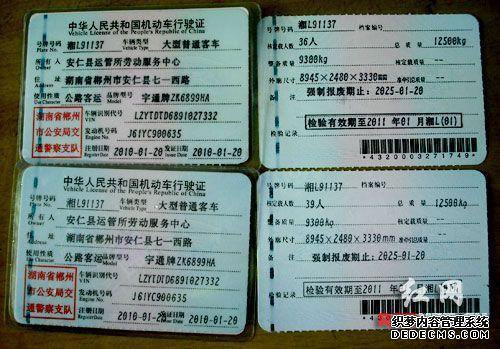 中华人民共和国机动车行驶证
Vehicle License of the People's Republic of China
号牌号码 湘L91137 车辆类型 大型普通客车
Plate No. Vehicle Type
所有人 安仁县运管所劳动服务中心
Owner
住址 湖南省郴州市安仁县七一西路
Address
使用性质 公路客运 品牌型号 宇通牌ZK6899HA
Use Character Model
湖南省郴州市公安局交通警察支队
车辆识别代号 LZYTDTD6891027332
VIN
发动机号码 J61YC900635
Engine No.
注册日期 2010-01-20 发证日期 2010-01-20
Register Date Issue Date
号牌号码 湘L91137 档案编号
核定载人数 36人 总质量 12500kg
整备质量 9300kg 核定载质量
外廓尺寸 8945×2480×3330mm 准牵引总质量
强制报废期止:2025-01-20
检验有效期至2011年01月湘L(01)
检验记录
*4320003271749*
中华人民共和国机动车行驶证
Vehicle License of the People's Republic of China
号牌号码 湘L91137 车辆类型 大型普通客车
Plate No. Vehicle Type
所有人 安仁县运管所劳动服务中心
Owner
住址 湖南省郴州市安仁县七一西路
Address
使用性质 公路客运 品牌型号 宇通牌ZK6899HA
Use Character Model
湖南省郴州市公安局交通警察支队
车辆识别代号 LZYTDTD6891027332
VIN
发动机号码 J61YC900635
Engine No.
注册日期 2010-01-20 发证日期 2010-01-20
Register Date Issue Date
号牌号码 湘L91137 档案编号
核定载人数 39人 总质量 12500kg
整备质量 9300kg 核定载质量
外廓尺寸 8945×2480×3330mm 准牵引总质量
强制报废期止:2025-01-20
检验有效期至2011年
检验记录
红网
织梦内容管理系统
DEDECMS.COM